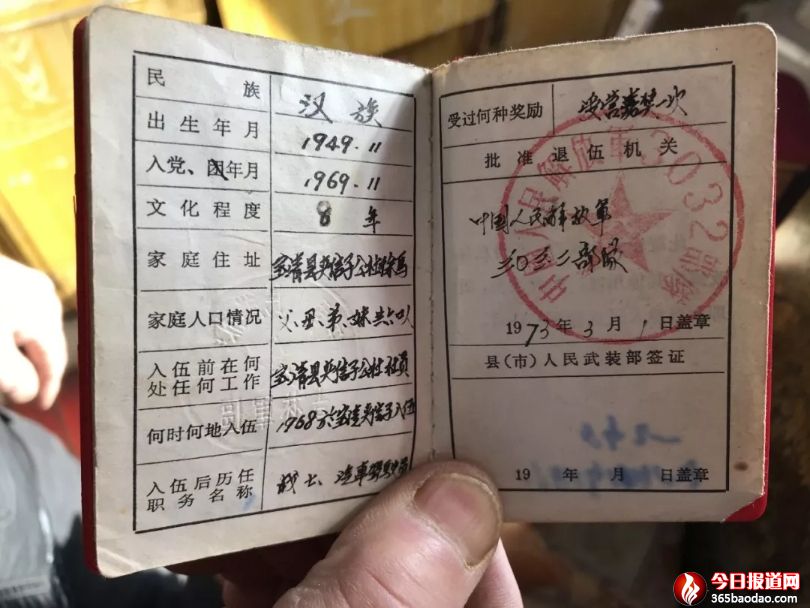 民族 汉族
出生年月 1949.11
入党、团年月 1969.11
文化程度 8年
家庭住址 宝清县夹信子公社
家庭人口情况 父、母、弟、妹共六口人
入伍前在何处任何工作 宝清县夹信子公社社员
何时何地入伍 1968 夹信子入伍
入伍后历任职务名称 战士、汽车驾驶员
受过何种奖励 受营嘉奖一次
批准退伍机关
中国人民解放军
三〇三二部队
中国人民解放军3032部队
1973年3月1日盖章
县(市)人民武装部签证
19 年 月 日盖章
今日报道网
365baodao.com